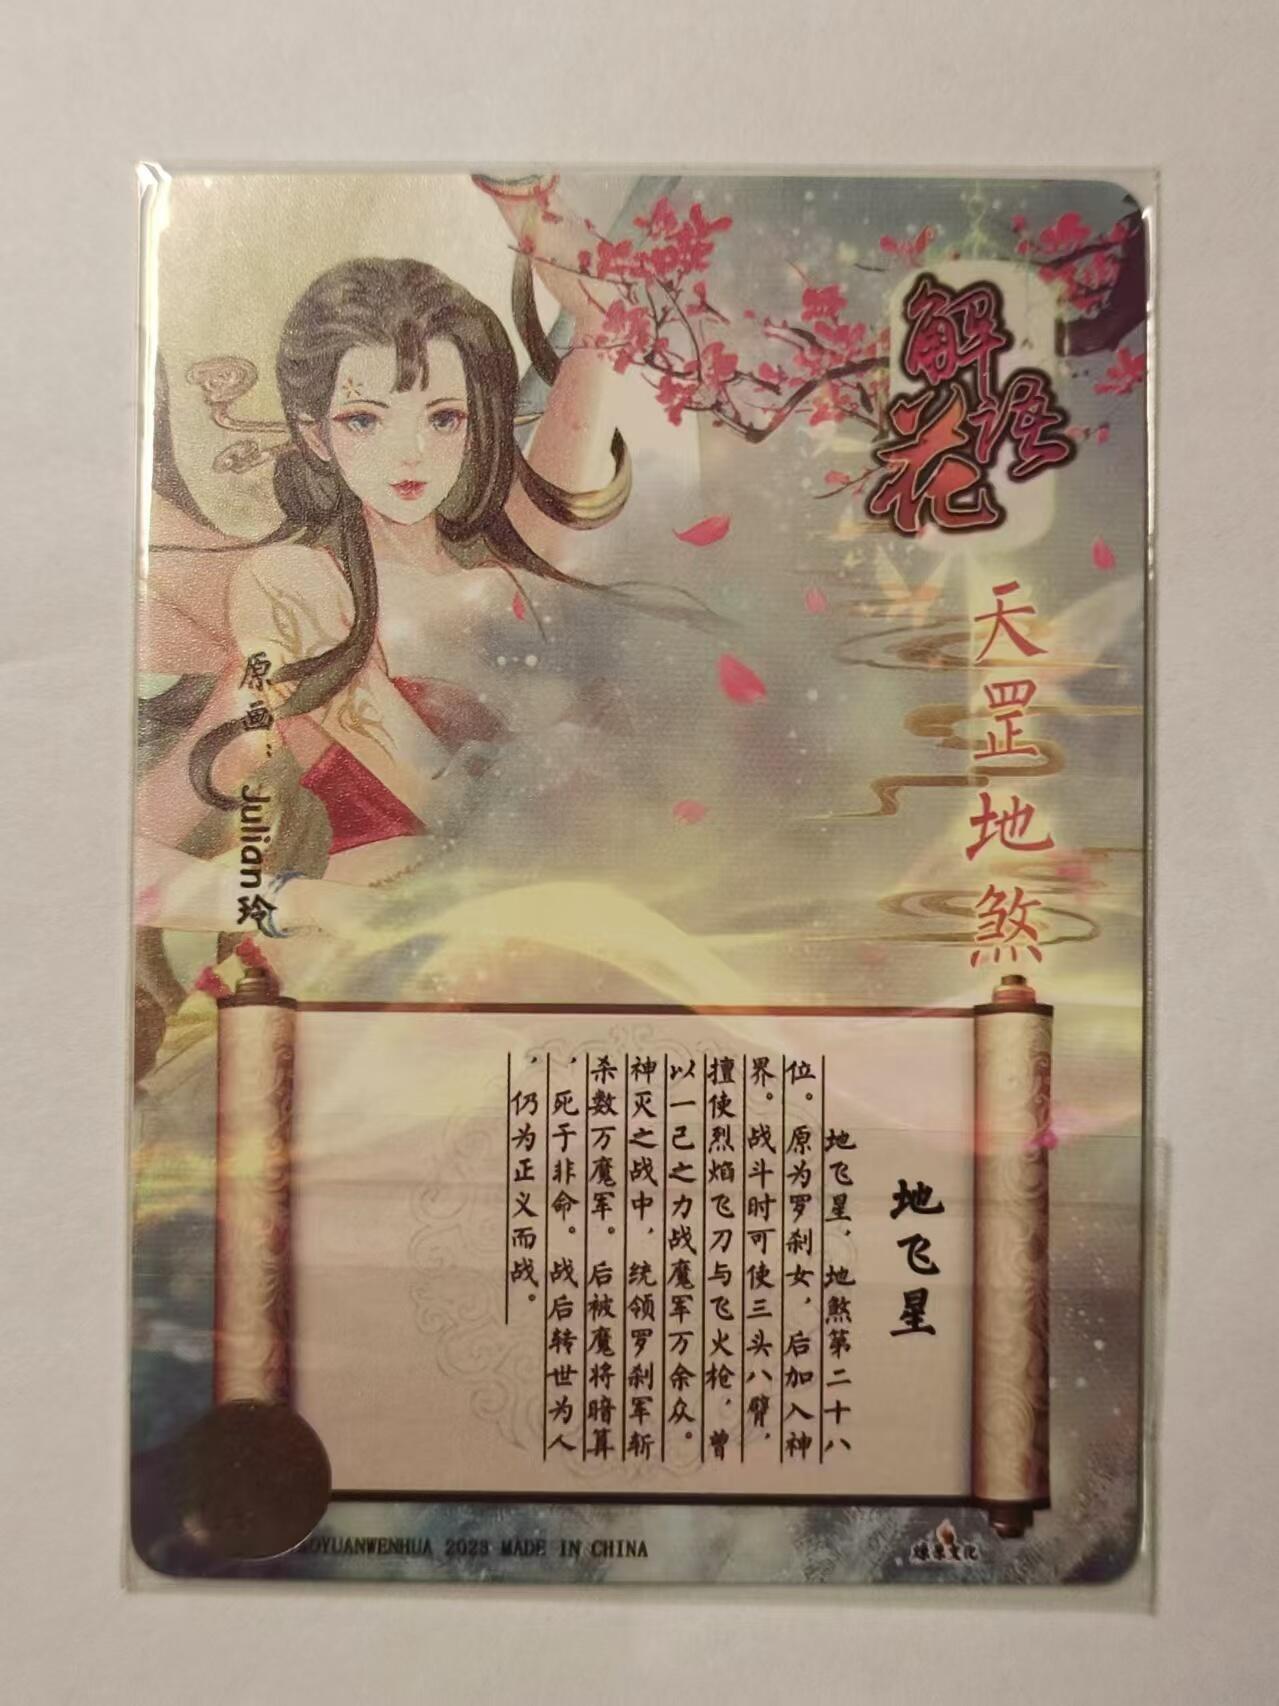 解语花
天罡地煞
原画：Julian玲
地飞星
地飞星，地煞第二十八
位。原为罗刹女，后加入神
界。战斗时可使三头八臂，
擅使烈焰飞刀与飞火枪，曾
以一己之力战魔军万余众。
神灭之战中，统领罗刹军斩
杀数万魔军。后被魔将暗算
，死于非命。战后转世为人
，仍为正义而战。
OYUANWENHUA 2023 MADE IN CHINA
文化